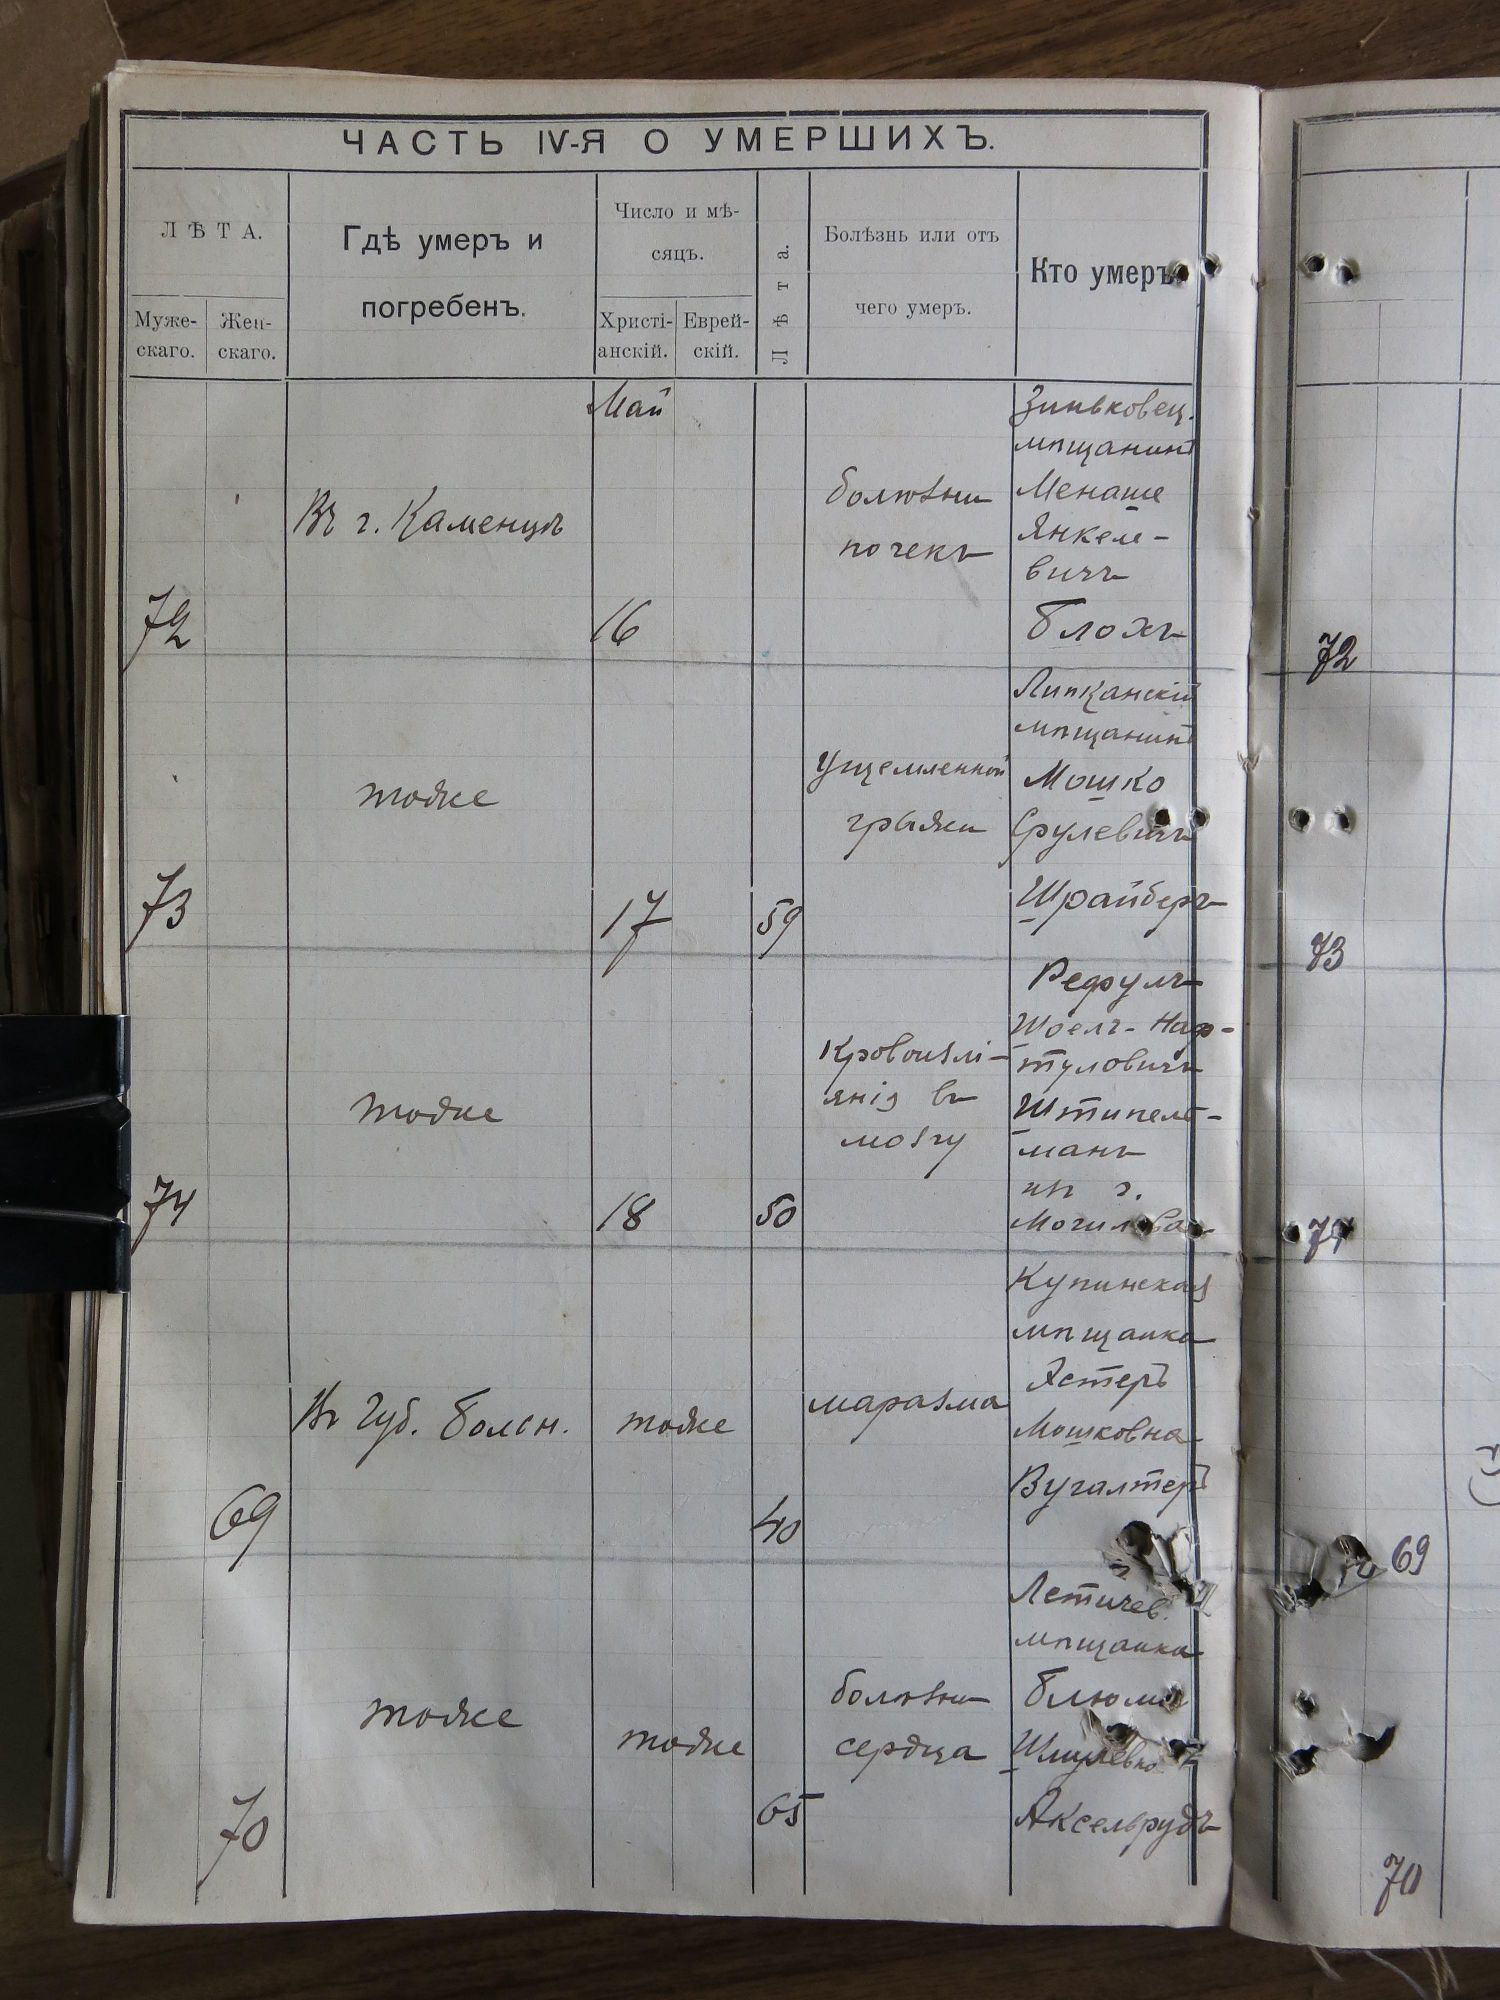 ЧАСТЬ IV-Я О УМЕРШИХЪ.
ЛѢТА.
Муже-
скаго.
Жен-
скаго.
Гдѣ умеръ и
погребенъ.
Число и мѣ-
сяцъ.
Христі-
анскій.
Еврей-
скій.
Лѣта.
Болѣзнь или отъ
чего умеръ.
Кто умеръ.
72
Въ г. Каменцѣ
Май
16
болѣзни
почекъ
Зиньковец.
мѣщанинъ
Менаше
Янкеле-
вичъ
Блохъ
73
тоже
17
59
Ущемленной
грыжи
Липканскій
мѣщанинъ
Мошко
Срулевичъ
Шрайберъ
74
тоже
18
50
Кровоизлі-
янія въ
мозгу
Рефулъ
Шоелъ-Наф-
туловичъ
Штипель-
манъ
г.
Могилева
69
Въ Губ. больн.
тоже
40
маразма
Купинская
мѣщанка
Эстеръ
Мошковна
Бугалтеръ
70
тоже
тоже
65
болѣзни
сердца
Летичев.
мѣщанка
Блюма
Шмулевна
Аксельрудъ
72
73
74
69
70